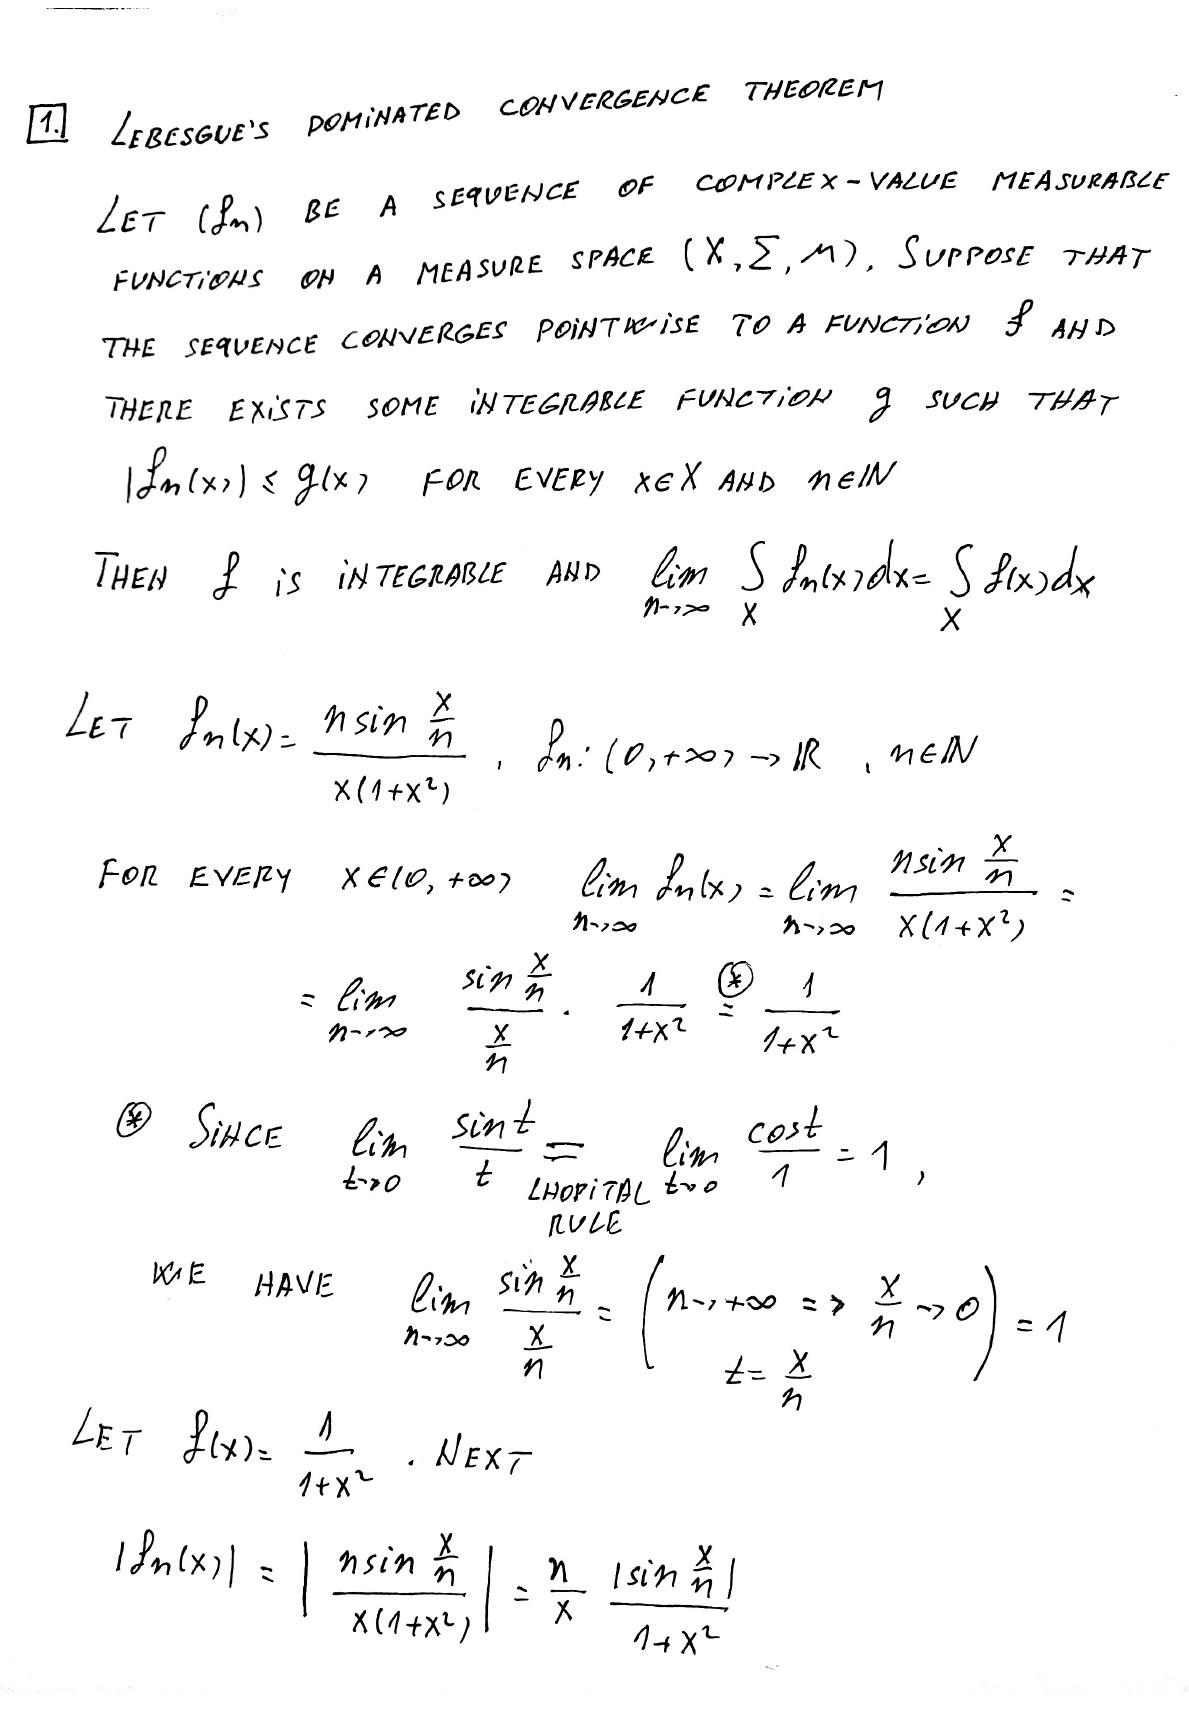 1. LEBESGUE'S DOMINATED CONVERGENCE THEOREM
LET (fn) BE A SEQUENCE OF COMPLEX-VALUE MEASURABLE
FUNCTIONS ON A MEASURE SPACE (X, Σ, M), SUPPOSE THAT
THE SEQUENCE CONVERGES POINTWISE TO A FUNCTION f AND
THERE EXISTS SOME INTEGRABLE FUNCTION g SUCH THAT
|fn(x)| ≤ g(x) FOR EVERY x∈X AND n∈ℕ
THEN f is INTEGRABLE AND lim_{n→∞} ∫_X fn(x)dx = ∫_X f(x)dx
LET fn(x) = (n sin x/n)/(x(1+x²)), fn: (0,+∞) → ℝ, n∈ℕ
FOR EVERY x∈(0,+∞) lim_{n→∞} fn(x) = lim_{n→∞} (n sin x/n)/(x(1+x²)) =
= lim_{n→∞} (sin x/n)/(x/n) · 1/(1+x²) =^{(*)} 1/(1+x²)
(*) SINCE lim_{t→0} sin t/t = lim_{t→0} cos t/1 = 1,
LHOPITAL
RULE
WE HAVE lim_{n→∞} (sin x/n)/(x/n) = (n→+∞ => x/n → 0 t = x/n) = 1
LET f(x) = 1/(1+x²). NEXT
|fn(x)| = |(n sin x/n)/(x(1+x²))| = n/x |sin x/n|/(1+x²)